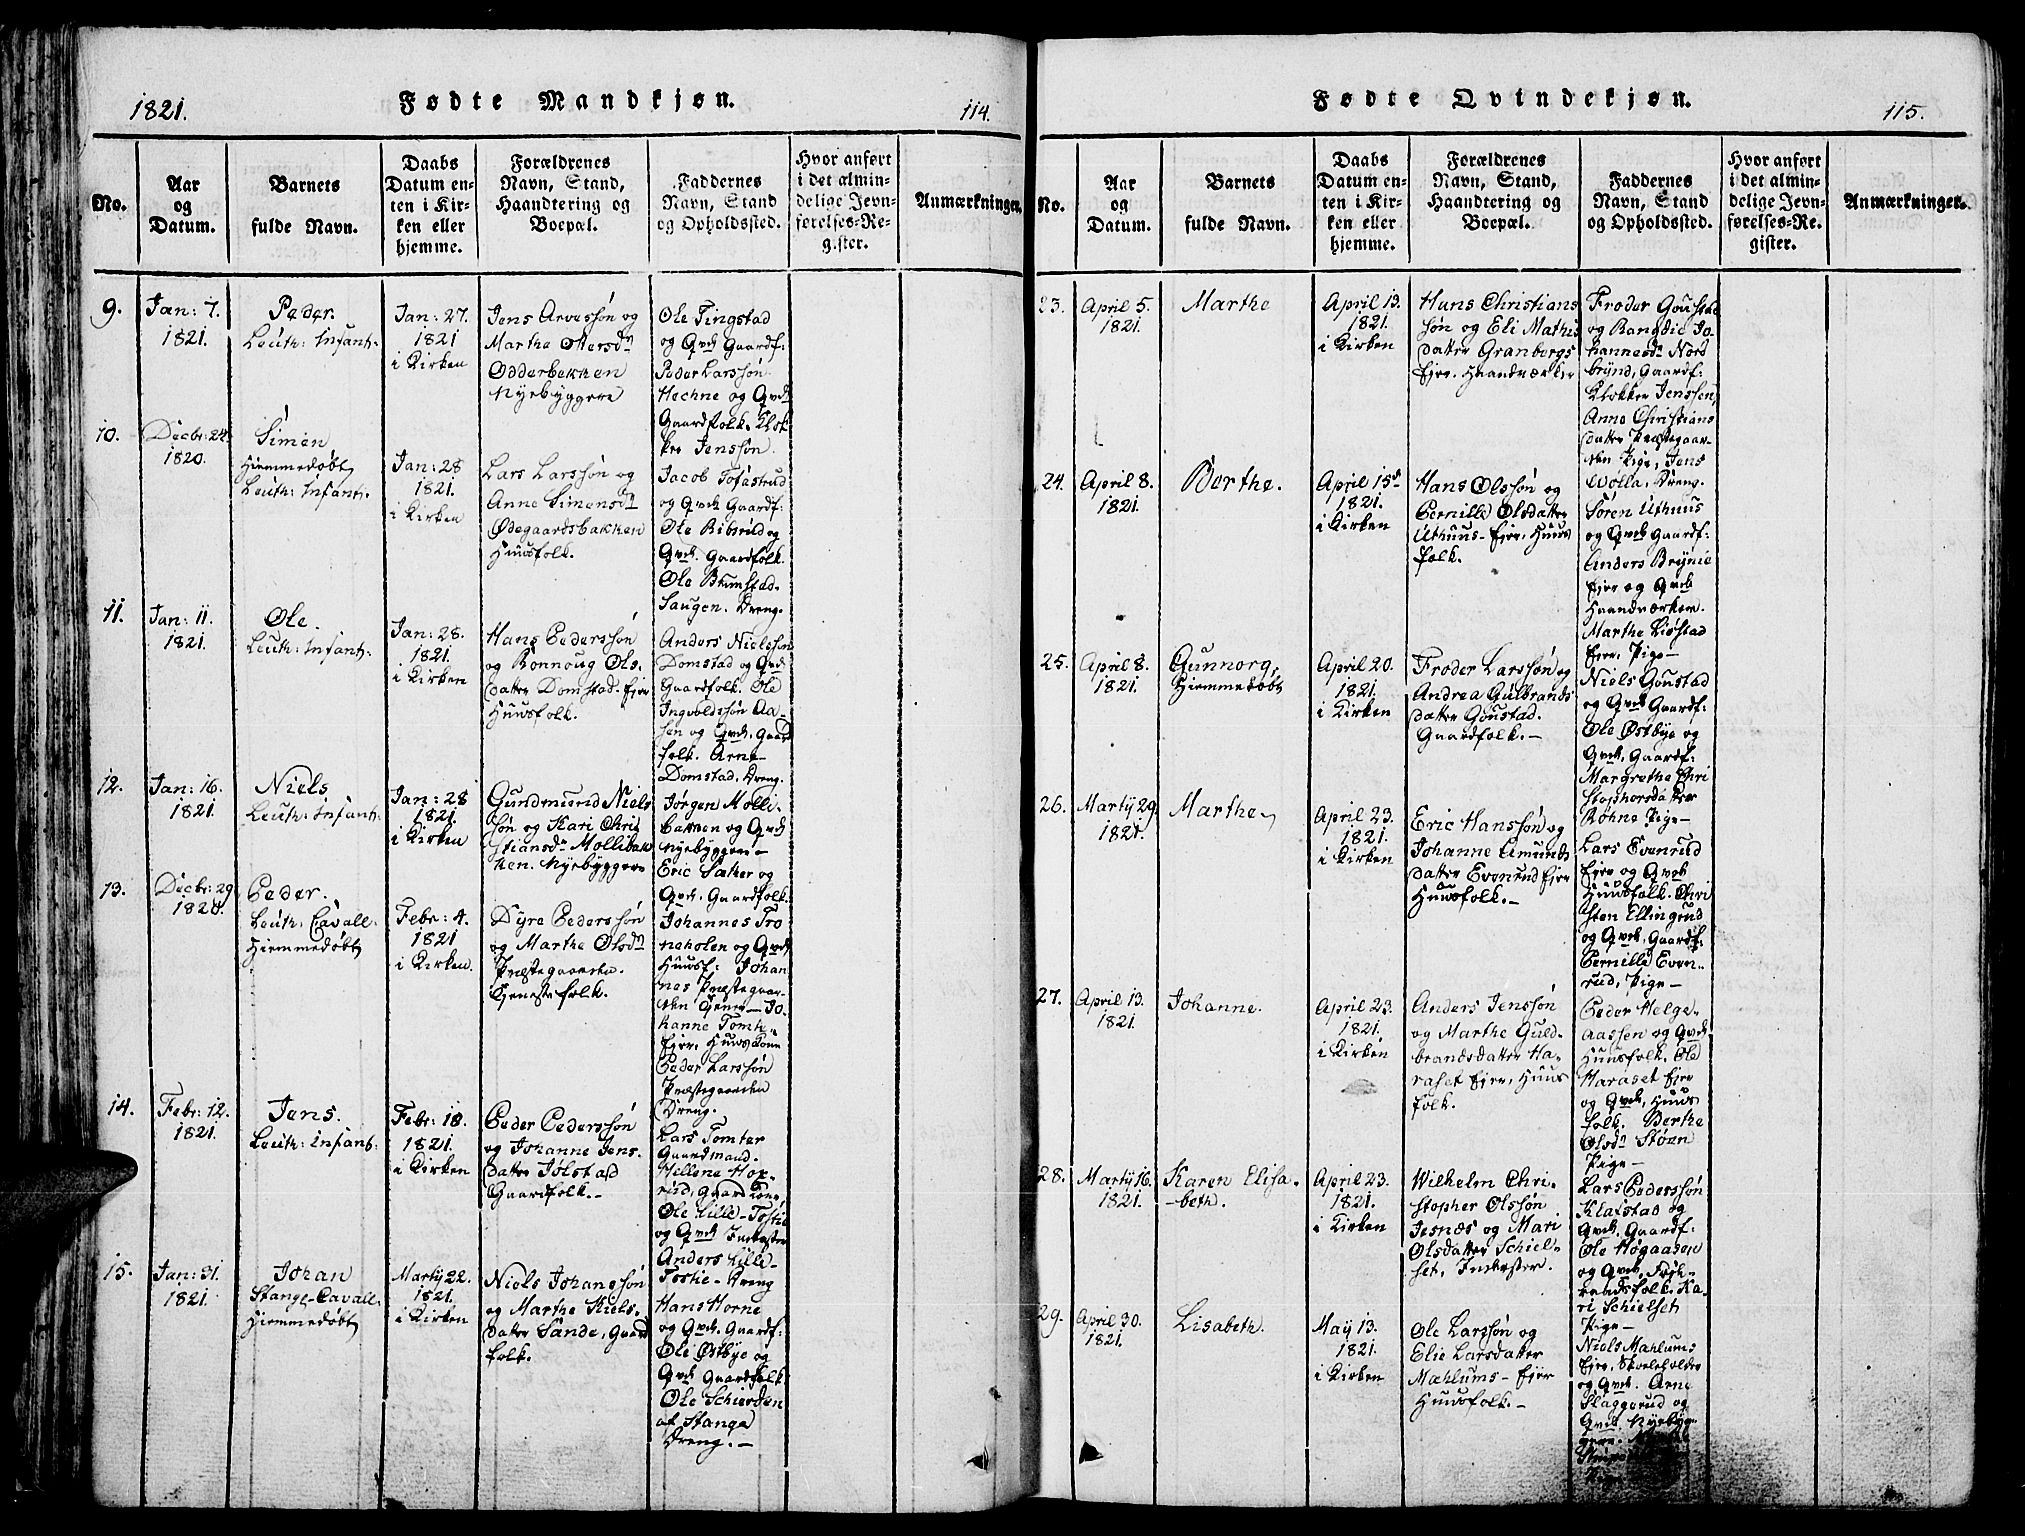 1821.
Fødte Mandkjøn.
114.
No.
Aar
og
Datum.
Barnets
fulde Navn.
Daabs
Datum en-
ten i Kir-
ken eller
hjemme.
Forældrenes
Navn, Stand,
Haandtering og
Boepæl.
Faddernes
Navn, Stand
og Opholdssted.
Hvor anført
i det almin-
delige Jevn-
førelses-Re-
gister.
Anmærkninger.
9.
Jan: 7.
1821.
Peder.
Leuth: Infant:
Jan: 27.
1821
i Kirken
Jens Arvessøn og
Marthe Ottersdr
Odderbekken
Nyebyggere
Ole Tingstad
og Qvck Gaardf:
Peder Larssøn
Hechne og Qvck
Gaardfolk. Klok
ker Jenssøn.
10.
Decbr: 24.
1820.
Simen
Hiemmedøbt
Leuth: Infant:
Jan: 28
1821.
i Kirken
Lars Larssøn og
Anne Simensdr
Ødegaardsbakken
Huusfolk.
Jacob Tofastrud
og Qvck Gaardf:
Ole Ribsrud og
Qvck. Gaardfolk.
Ole Blumstad-
Haugen. Dreng.
11.
Jan: 11.
1821.
Ole.
Leuth: Infant:
Jan: 28.
1821.
i Kirken
Hans Pederssøn
og Ronnoug Ols-
datter Domstad. Ejer
Huusfolk.
Anders Nielssøn
Domstad og Qvck
Gaardfolk. Ole
Ingvoldssøn Aa-
sen og Qvck. Gaard
folk. Arne
Domstad, Dreng.
12.
Jan: 16.
1821.
Niels
Leuth: Infant:
Jan: 28
1821.
i Kirken
Gundmund Niels
søn og Kari Chri
stiansdr Mollibak
ken. Nyebyggere
Jørgen Molli-
bakken og Qvck
Nyebyggere-
Eric Sæther og
Qvck. Gaardfolk.
13.
Decbr: 29
1820.
Peder.
Leuth: Cavall:
Hiemmedøbt
Febr: 4.
1821
i Kirken.
Dyre Pederssøn
og Marthe Olsdr
Præstegaarden.
Tjenestefolk.
Johannes Tro
neholen og Qvck
Huusf: Johan
nes Præstegaar-
den Tjener- Jo-
hanne Tomte-
Ejer, Huuskone
Peder Larssøn
Præstegaarden
Dreng.
14.
Febr: 12.
1821.
Jens.
Leuth: Infant:
Febr: 18.
1821.
i Kirken
Peder Pederssøn
og Johanne Jens-
datter Jølstad
Gaardfolk.-
Lars Tomter
Gaardmand.
Hellene Hox-
rud, Gaardkone,
Ole Lille-Tostie
og Qvck Inderster
Anders Lille-
Tostie- Dreng
15.
Jan: 31.
1821.
Johan
Stange-Cavall:
Hiemmedøbt
Martij 22.
1821.
i Kirken
Niels Johanssøn
og Marthe Niels-
datter Sande, Gaard
folk.
Hans Horne
og Qvck. Gaardf:
Ole Østbye og
Qvck Gaardfolk
Ole Schierden
af Stange
Dreng.-
Fødte Qvindekjøn.
115.
No.
Aar
og
Datum.
Barnets
fulde Navn.
Daabs
Datum en-
ten i Kir-
ken eller
hjemme.
Forældrenes
Navn, Stand,
Haandtering og
Boepæl.
Faddernes
Navn, Stand
og Opholdssted.
Hvor anført
i det almin-
delige Jevn-
førelses-Re-
gister.
Anmærkninger.
23.
April 5.
1821.
Marthe
April 13.
1821.
i Kirken
Hans Christians
søn og Eli Mathis
datter Granbergs
Ejer. Haandværker
Froder Goustad
og Ranedie Jo
hannesdr Nord
brynd, Gaardf:
Klokker Jenssen,
Anne Christians
datter Præstegaar-
den Pige, Jens
Wolla, Dreng.
24.
April 8.
1821.
Berthe.
April 15de
1821.
i Kirken
Hans Olssøn og
Pernille Olsdatter
Uthuus- Ejer, Huus
folk.
Søren Uthuus
og Qvck Gaardf:
Anders Brynie
Ejer og Qvck
Haandværker.
Marthe Liøstad
Ejer, Pige-
25.
April 8.
1821.
Gunnorg,
Hiemmedøbt
April 20.
1821.
i Kirken
Froder Larssøn og
Andrea Gulbrands
datter Goustad.
Gaardfolk.-
Niels Goustad
og Qvck Gaardf:
Ole Østbye og
Qvck. Gaardf:
Margrethe Chri
stophersdatter
Røhne Pige-
26.
Martij 29.
1821.
Marthe
April 23.
1821.
i Kirken
Eric Hanssøn og
Johanne Amunds
datter Evenrud Ejer
Huusfolk.-
Lars Evenrud
Ejer og Qvck
Huusfolk. Chri
sten Ellingrud
og Qvck. Gaardf:
Pernille Even-
rud, Pige-
27.
April 13.
1821.
Johanne.
April 23.
1821.
i Kirken
Anders Jenssøn
og Marthe Guld-
brandsdatter Ha-
raset Ejer, Huus
folk.
Peder Helge-
aassen og Qvck
Huusfolk. Ole
Haraset Ejer
og Qvck, Huus
folk. Berthe
Olsdr Støen
Pige-
28.
Martij 16.
1821.
Karen Elisa-
-beth.
April 23.
1821.
i Kirken
Wilhelm Chri-
stopher Olssøn
Jesnæs og Mari
Olsdatter Schiel-
set, Inderster.
Lars Pederssøn
Klæstad og
Qvck. Gaardf:
Ole Høgaasen
og Qvck.
Ka-
ri Schielset
Pige-
29.
April 30.
1821.
Lisabeth.
May 13.
1821.
i Kirken
Ole Larssøn og
Elie Larsdatter
Mæhlums- Ejer
Huusfolk.-
Niels Mæhlums
Ejer, Skoleholder
og Qvck. Arne
Slaggerud og
Qvck. Nyebyg-
gere.
Pige